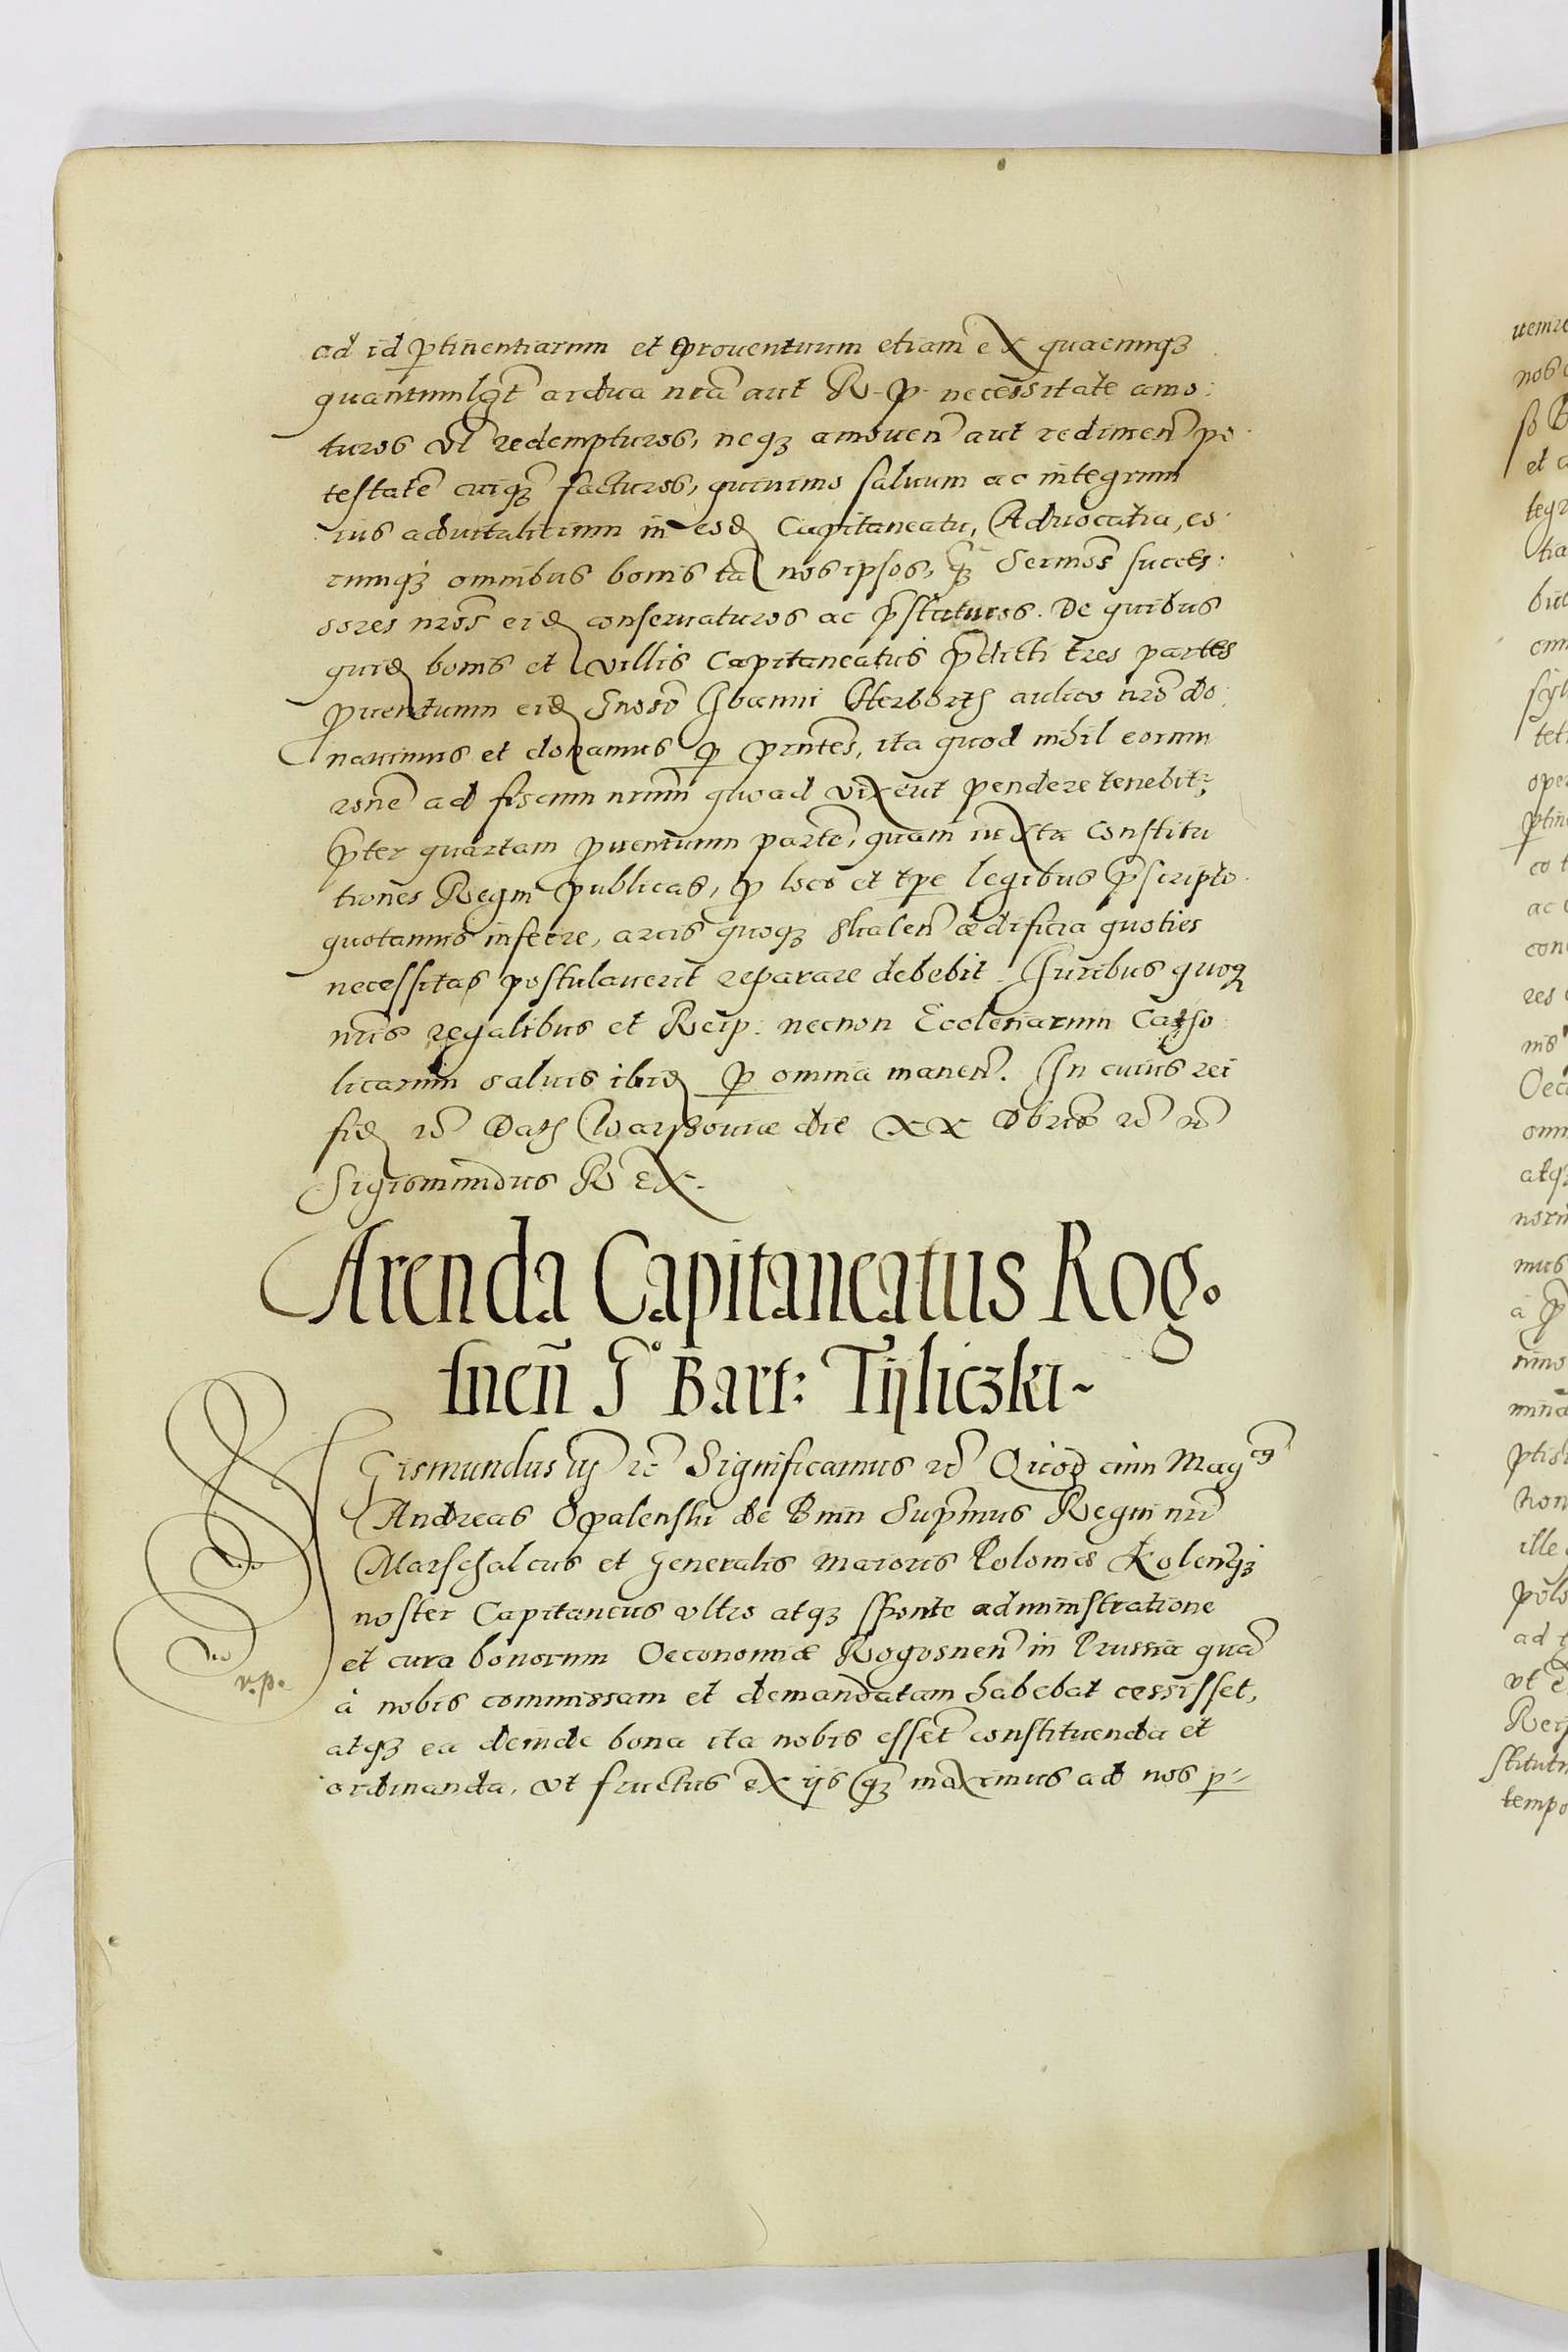 ad id ptinentiarum et prouentuum etiam ex quacunqȝ
quantumlbt ardua nrã aut R. P. necessitate amo:
turos vl redempturos, neqȝ amouen̄ aut redimen̄ po
testatē cuiqȝ facturos, quinimo saluum ac integrum
ius aduitalitium in eod Capitaneatu, Aduocatia, eo
rumqȝ omnibus bonis tã nos ipsos, qȝ Sermōs succes:
sores nrōs eid conseruaturos ac p̄staturos. De quibus
quid bonis et villis Capitaneatus p̄dicti tres partes
puentuum eid Gnoso Ioanni Herborth aulico nrō do:
nauimus et donamus p pn̄tes, ita quod nihil eorum
rōne ad fiscum nrum quoad vixerit pendere tenebit:
p̄ter quartam puentuum partē, quam iuxta Constitu
tiones Regni publicas, p loco et tpe legibus p̄scripto
quotannis inferre, arcis quoqȝ ehalen̄ ædificia quoties
necessitas postulauerit reparare debebit. Iuribus quoq
nris regalibus et Reip: necnon Ecclesiarum Catho
licarum saluis ibid p omnia manen̄. In cuius rei
fid rc̄ Dath Warssouiæ die XX Obris rc̄ rc̄
Sigismundus Rex.
Arenda Capitaneatus Rog.
snen̄ G° Bart: Tijliczki~
SIGismundus iij rc̄ Significamus rc̄ Quod cum Magcus
Andreas Opalenski de Bnin Supmus Regni nrī
Marschalcus et Generalis maioris Polonies Kolen̄qȝ
noster Capitaneus vltro atqȝ sponte administratione
et cura bonorum Oeconomiæ Rogosnen̄ in Prussia quã
à nobis commissam et demandatam habebat cessisset,
atqȝ ea deinde bona ita nobis essēt constituenda et
ordinanda, vt fructus ex ijs qȝ maximus ad nos p-
v.p.